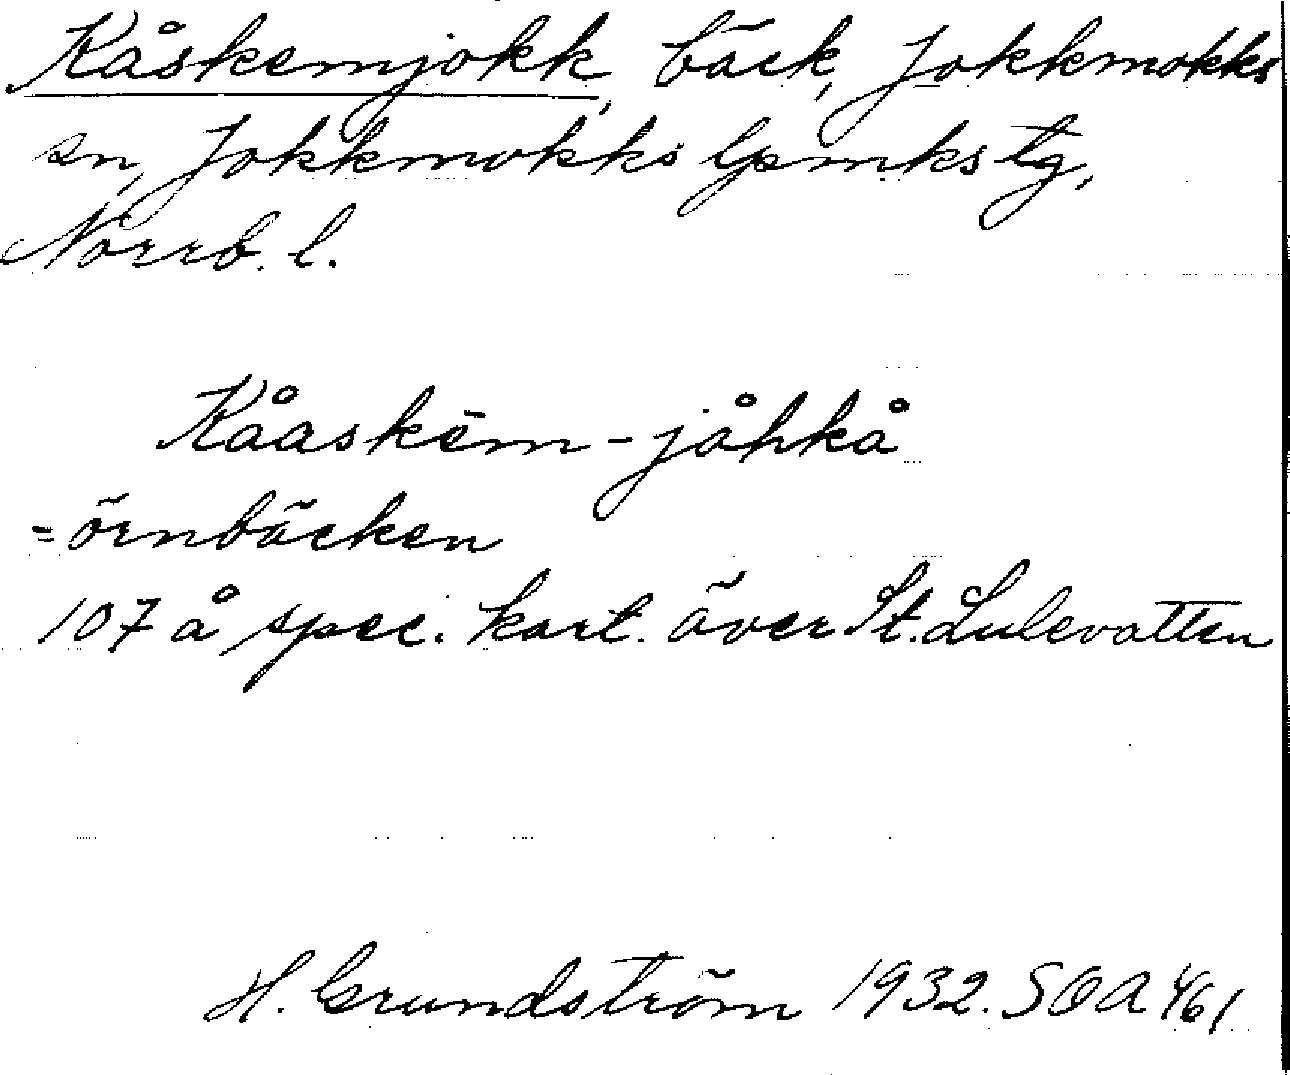 Kåskemjokk, bäck, Jokkmokks
sn, Jokkmokks lpmks tg,
Norrb. l.
Kååskēm-jåhkå
= örnbäcken
107 å spec. kart. över St. Lulevatten
H. Grundström 1932. SOA 461